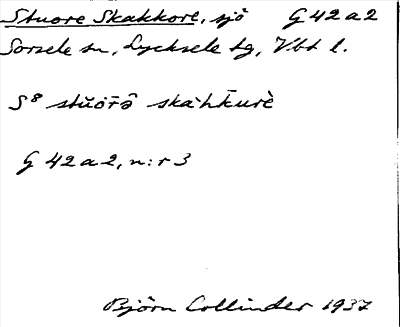 Stuore Skakkore, sjö G 42 a 2
Sorsele sn, Lycksele tg, Vbt l.
S⁸ stŭōr̄ə̂ skàh̄kurè
G 42 a 2, n:r 3
Björn Collinder 1937